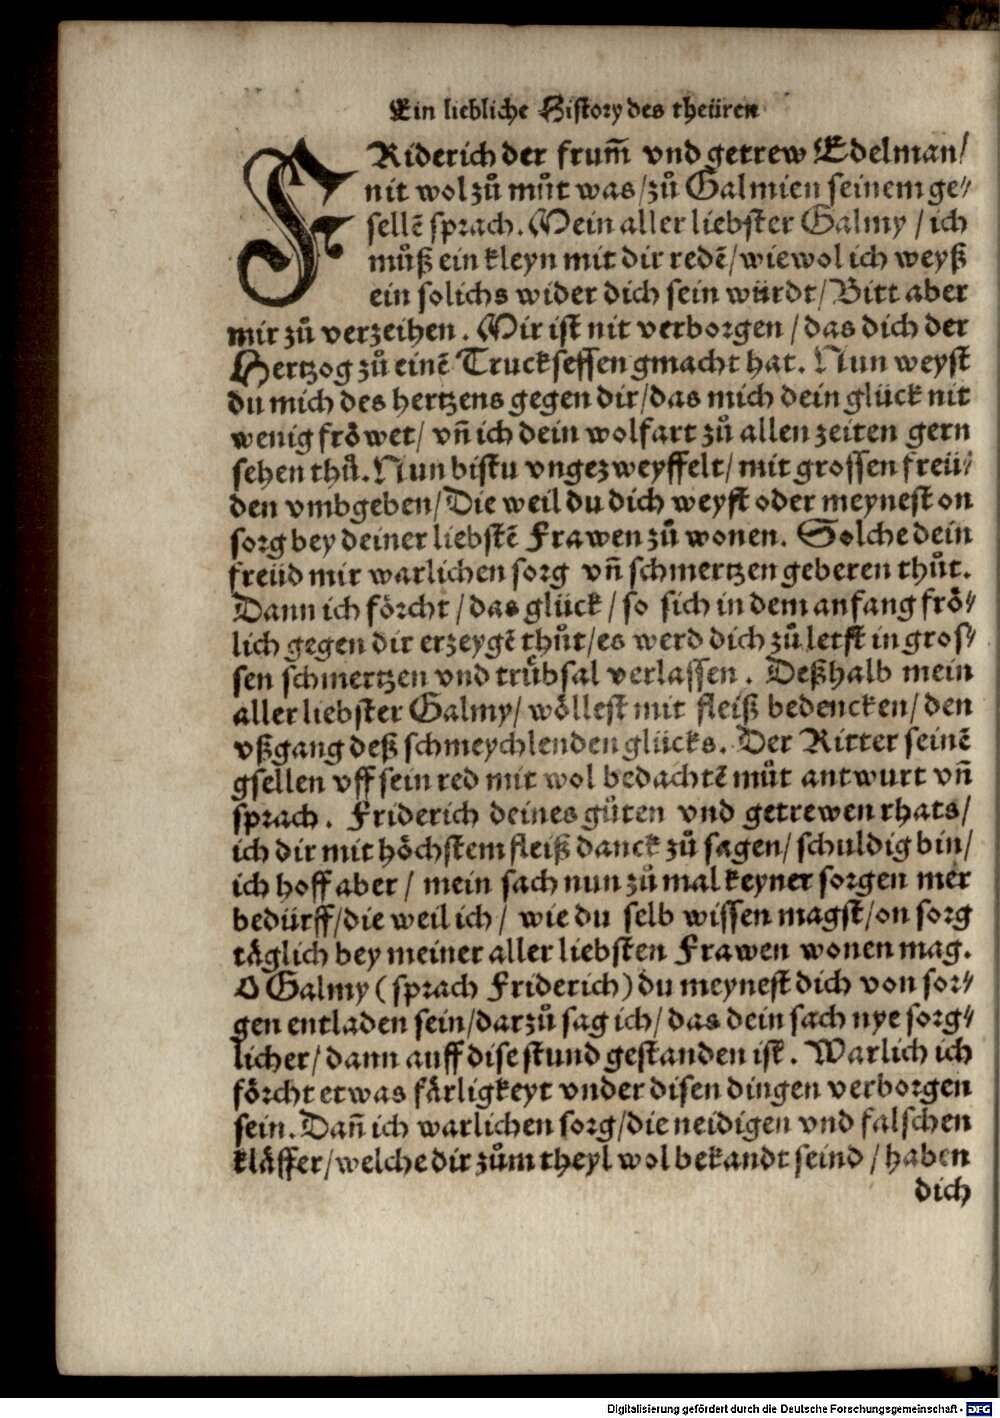 Ein liebliche History des theüren
FRiderich der frum̃ vnd getrew Edelman/
nit wol zů můt was/zů Galmien seinem ge⸗
sellẽ sprach. Mein aller liebster Galmy / ich
můß ein kleyn mit dir redẽ/wiewol ich weyß
ein solichs wider dich sein würdt/Bitt aber
mir zů verzeihen. Mir ist nit verborgen / das dich der
Hertzog zů einẽ Truckseſſen gmacht hat. Nun weyst
du mich des hertzens gegen dir/das mich dein glück nit
wenig frőwet/ vñ ich dein wolfart zů allen zeiten gern
sehen thů. Nun bistu vngezweyffelt/ mit grossen freü⸗
den vmbgeben/Die weil du dich weyst oder meynest on
sorg bey deiner liebstẽ Frawen zů wonen. Solche dein
freüd mir warlichen sorg vñ schmertzen geberen thůt.
Dann ich förcht / das glück / so sich in dem anfang frö⸗
lich gegen dir erzeygẽ thůt/es werd dich zů letst in gros⸗
sen schmertzen vnd trübsal verlassen. Deßhalb mein
aller liebster Galmy/ wöllest mit fleiß bedencken/ den
vßgang deß schmeychlenden glücks. Der Ritter seinẽ
gsellen vff sein red mit wol bedachtẽ můt antwurt vñ
sprach. Friderich deines gůten vnd getrewen rhats/
ich dir mit höchstem fleiß danck zů sagen/ schuldig bin/
ich hoff aber / mein sach nun zů mal keyner sorgen mer
bedürff/die weil ich / wie du selb wissen magst/on sorg
täglich bey meiner aller liebsten Frawen wonen mag.
O Galmy (sprach Friderich) du meynest dich von sor⸗
gen entladen sein/darzů sag ich/ das dein sach nye sorg⸗
licher/ dann auff dise stund gestanden ist. Warlich ich
förcht etwas färligkeyt vnder disen dingen verborgen
sein. Dañ ich warlichen sorg/die neidigen vnd falschen
kläffer/welche dir zům theyl wol bekandt seind / haben
dich
Digitalisierung gefördert durch die Deutsche Forschungsgemeinschaft - DFG